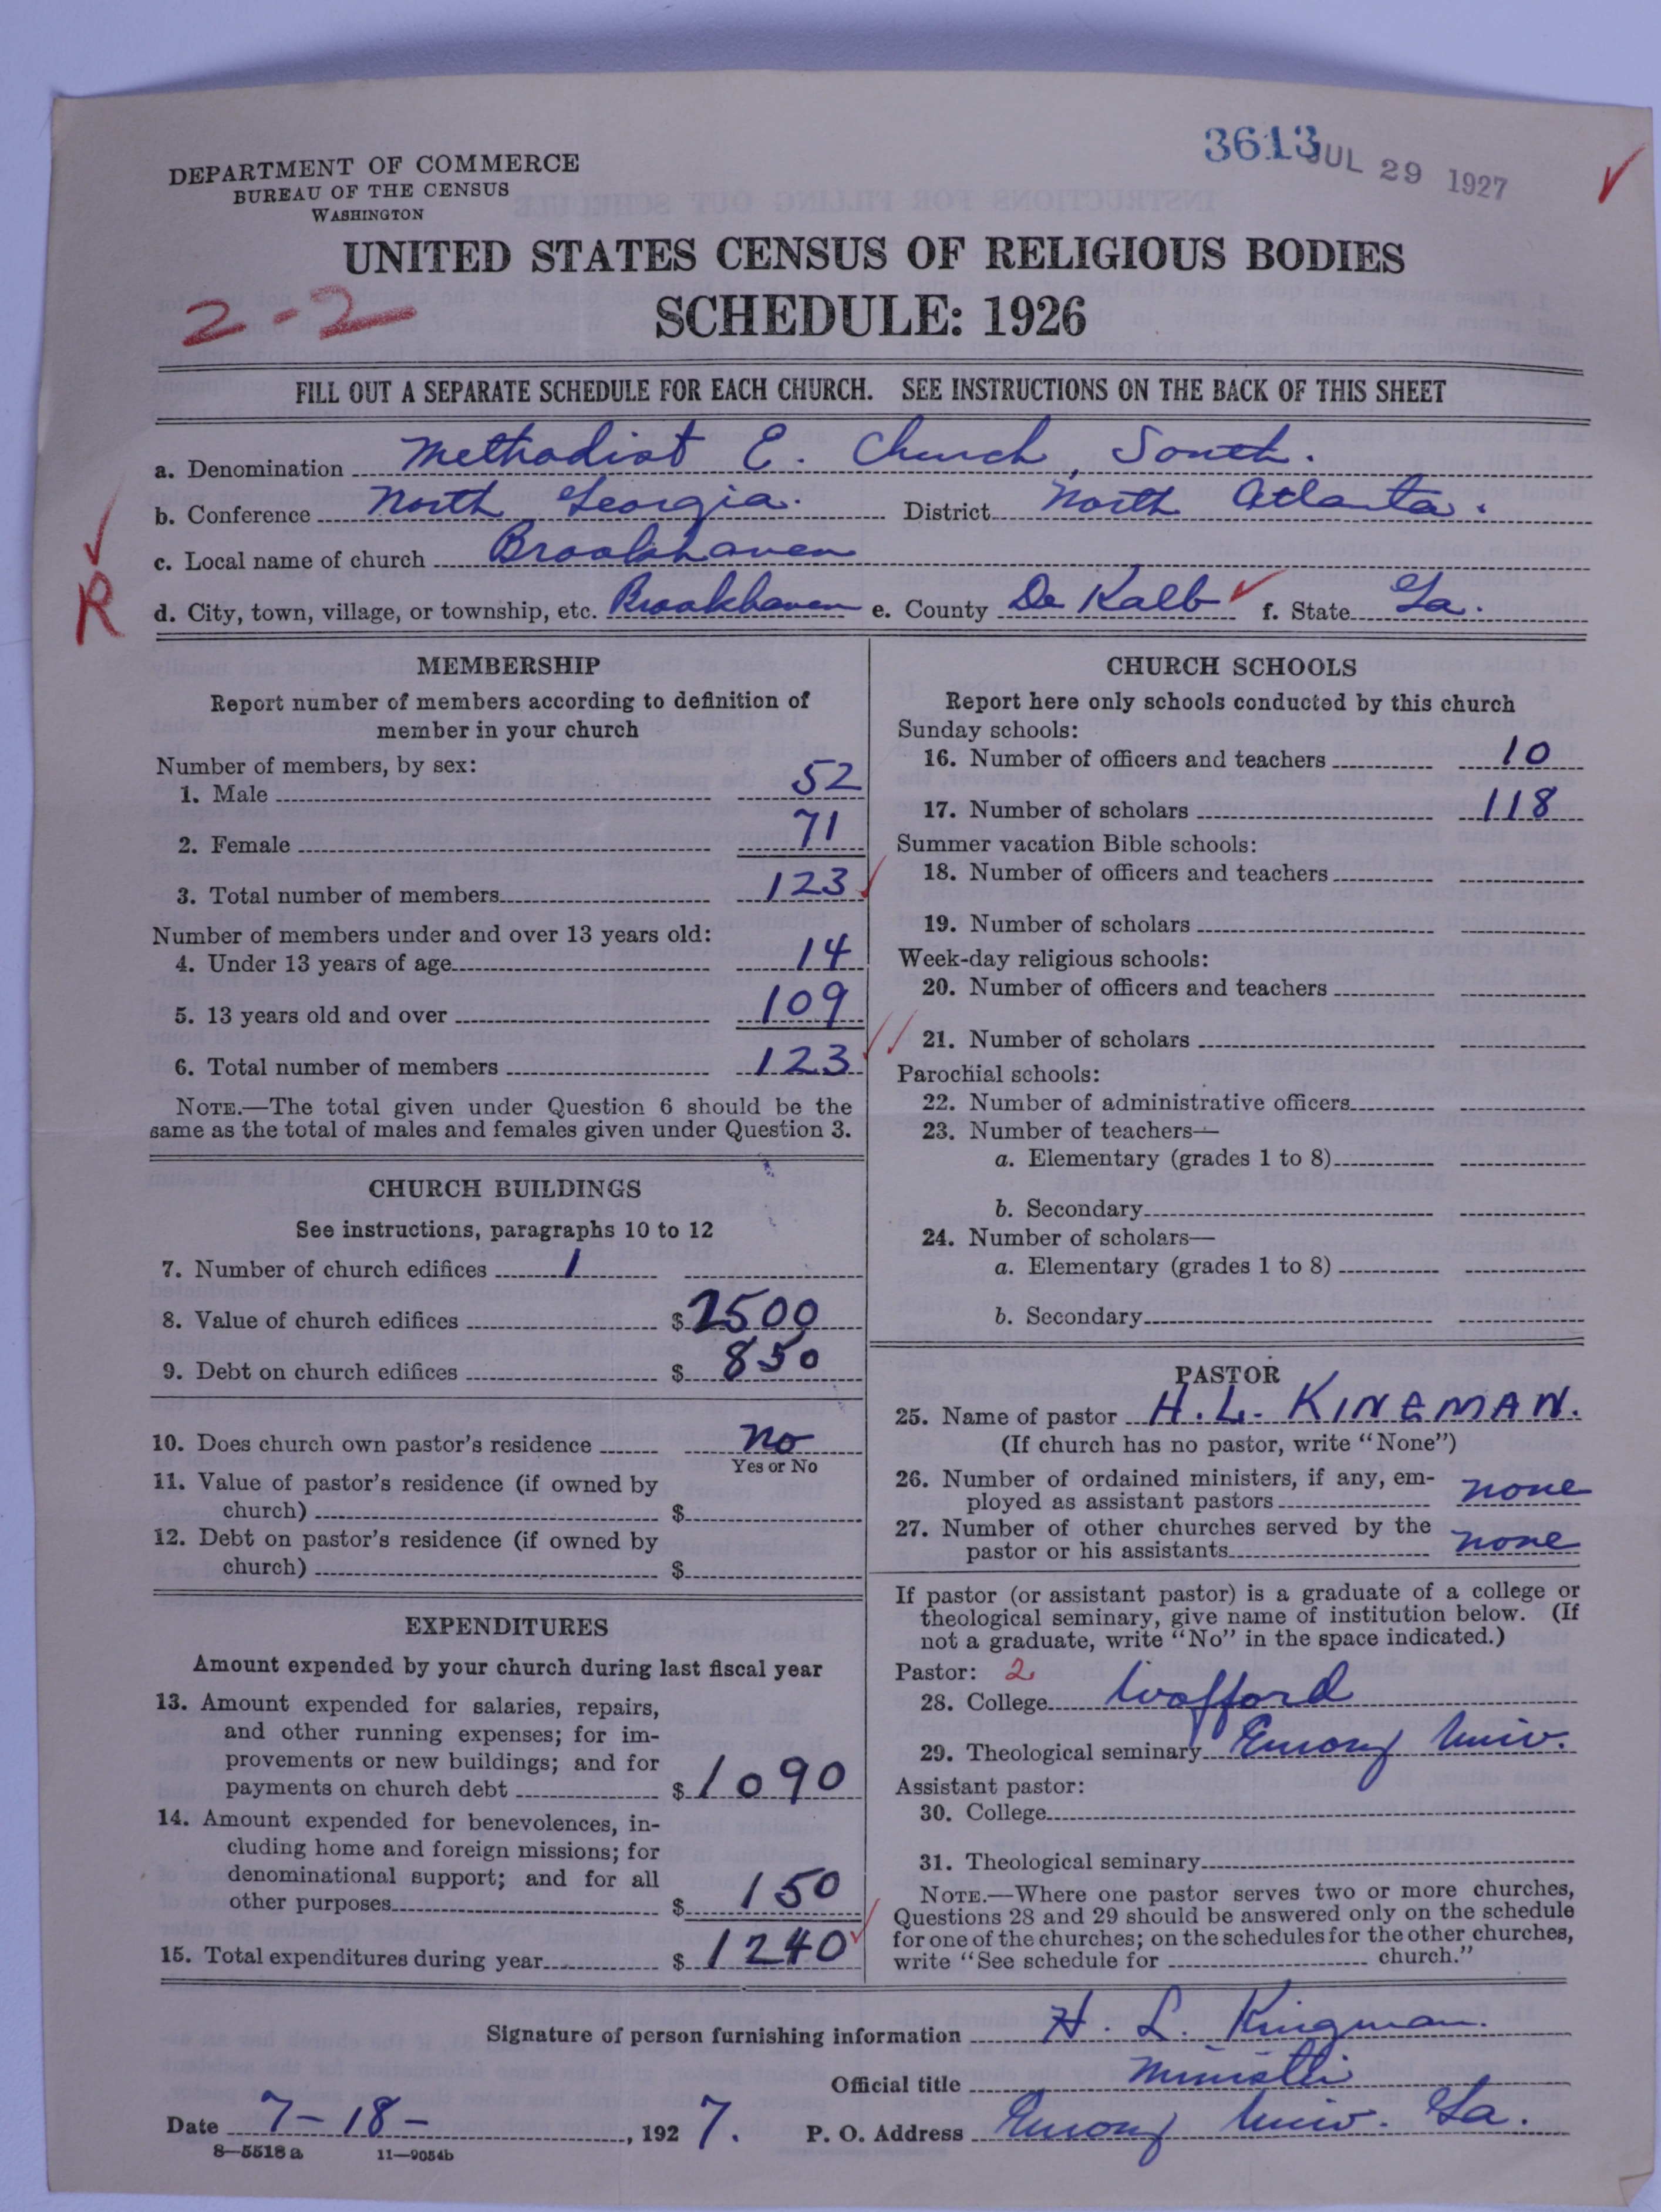 3613
JUL 29 1927
DEPARTMENT OF COMMERCE
BUREAU OF THE CENSUS
WASHINGTON
UNITED STATES CENSUS OF RELIGIOUS BODIES
2-2
SCHEDULE: 1926
FILL OUT A SEPARATE SCHEDULE FOR EACH CHURCH. SEE INSTRUCTIONS ON THE BACK OF THIS SHEET
a. Denomination Methodist E. Church, South.
b. Conference North Georgia. District North Atlanta.
c. Local name of church Brookhaven
R
d. City, town, village, or township, etc. Brookhaven e. County De Kalb f. State Ga.
MEMBERSHIP
Report number of members according to definition of
member in your church
Number of members, by sex:
1. Male 52
2. Female 71
3. Total number of members 123
Number of members under and over 13 years old:
4. Under 13 years of age 14
5. 13 years old and over 109
6. Total number of members 123
NOTE.—The total given under Question 6 should be the
same as the total of males and females given under Question 3.
CHURCH BUILDINGS
See instructions, paragraphs 10 to 12
7. Number of church edifices 1
8. Value of church edifices $ 2500
9. Debt on church edifices $ 850
10. Does church own pastor's residence no
Yes or No
11. Value of pastor's residence (if owned by
church) $
12. Debt on pastor's residence (if owned by
church) $
EXPENDITURES
Amount expended by your church during last fiscal year
13. Amount expended for salaries, repairs,
and other running expenses; for im-
provements or new buildings; and for
payments on church debt $ 1090
14. Amount expended for benevolences, in-
cluding home and foreign missions; for
denominational support; and for all
other purposes $ 150
15. Total expenditures during year $ 1240
CHURCH SCHOOLS
Report here only schools conducted by this church
Sunday schools:
16. Number of officers and teachers 10
17. Number of scholars 118
Summer vacation Bible schools:
18. Number of officers and teachers
19. Number of scholars
Week-day religious schools:
20. Number of officers and teachers
21. Number of scholars
Parochial schools:
22. Number of administrative officers
23. Number of teachers—
a. Elementary (grades 1 to 8)
b. Secondary
24. Number of scholars—
a. Elementary (grades 1 to 8)
b. Secondary
PASTOR
25. Name of pastor H. L. KINGMAN.
(If church has no pastor, write "None")
26. Number of ordained ministers, if any, em-
ployed as assistant pastors none
27. Number of other churches served by the
pastor or his assistants none
If pastor (or assistant pastor) is a graduate of a college or
theological seminary, give name of institution below. (If
not a graduate, write "No" in the space indicated.)
Pastor: 2
28. College Wofford
29. Theological seminary Emory Univ.
Assistant pastor:
30. College
31. Theological seminary
NOTE.—Where one pastor serves two or more churches,
Questions 28 and 29 should be answered only on the schedule
for one of the churches; on the schedules for the other churches,
write "See schedule for church."
Signature of person furnishing information H. L. Kingman.
Official title Minister
Date 7-18-, 1927. P. O. Address Emory Univ. Ga.
8—5518 a 11—9054b